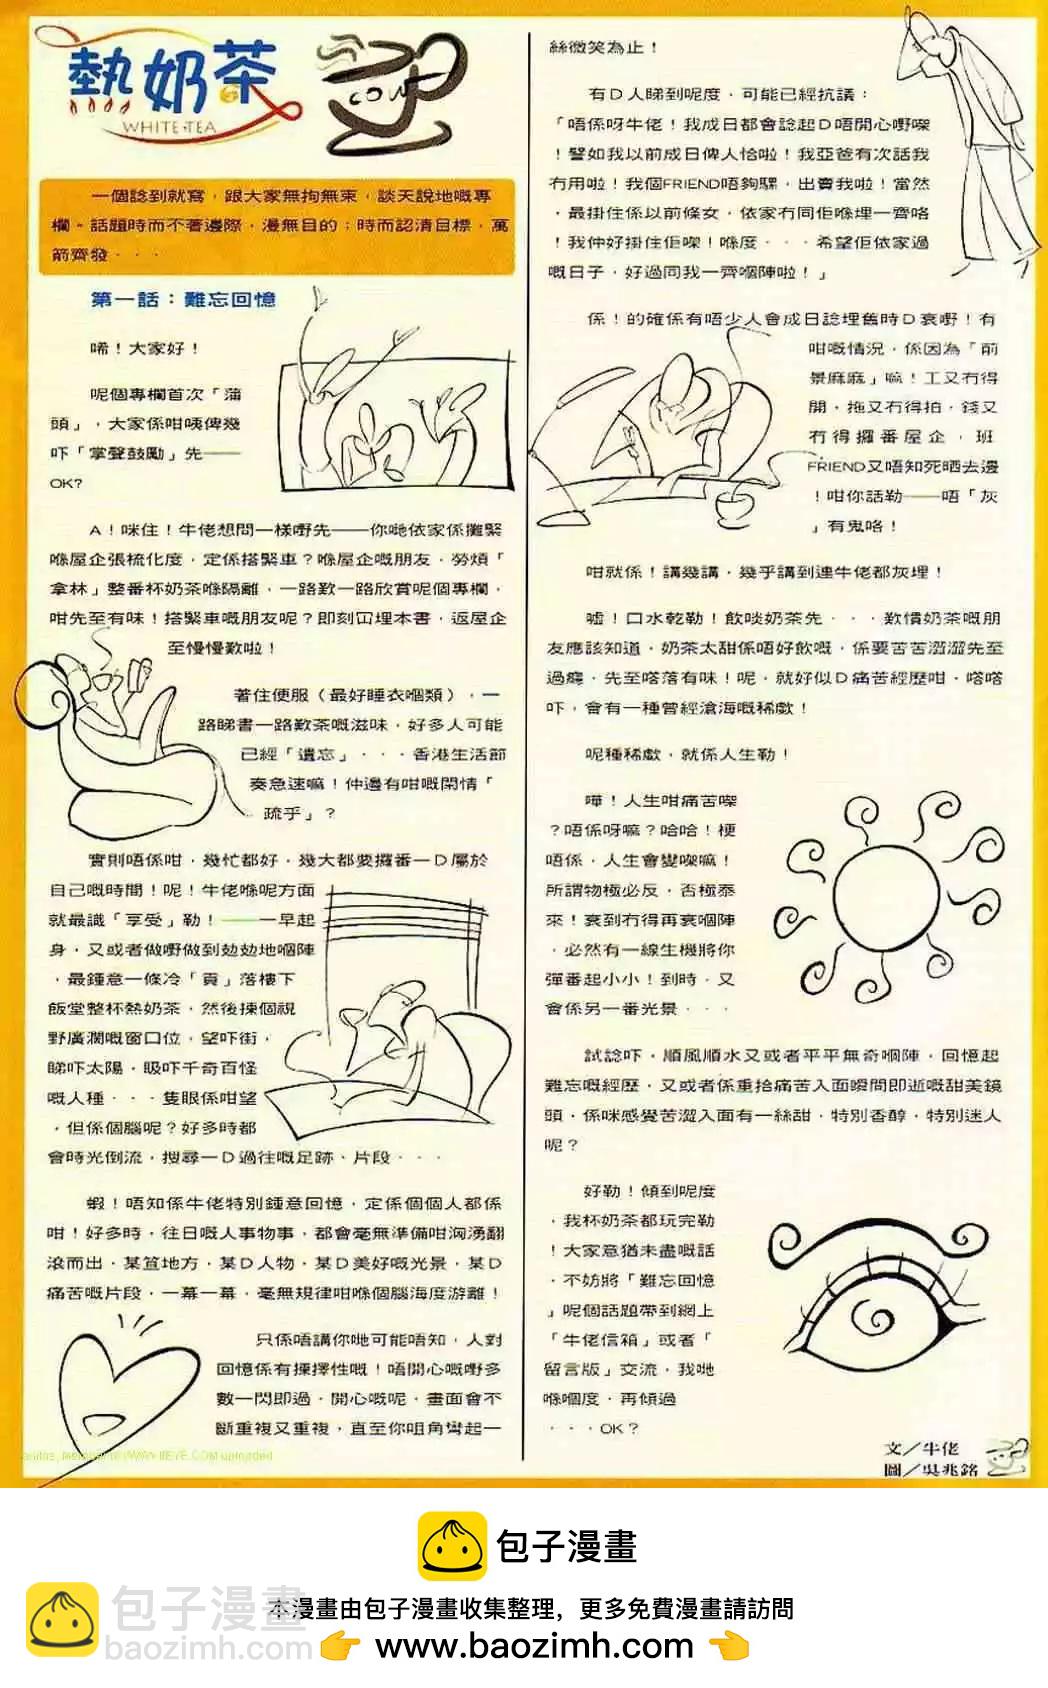 熱奶茶
WHITE·TEA
COW
一個諗到就寫，跟大家無拘無束，談天說地嘅專
欄。話題時而不著邊際，漫無目的；時而認清目標，萬
箭齊發．．．
第一話：難忘回憶
唏！大家好！
呢個專欄首次「蒲
頭」，大家係咁咦俾幾
吓「掌聲鼓勵」先——
OK?
A！咪住！牛佬想問一樣嘢先——你哋依家係攤緊
喺屋企張梳化度，定係搭緊車？喺屋企嘅朋友，勞煩「
拿林」整番杯奶茶喺隔離，一路歎一路欣賞呢個專欄，
咁先至有味！搭緊車嘅朋友呢？即刻冚埋本書，返屋企
至慢慢歎啦！
著住便服（最好睡衣嗰類），一
路睇書一路歎茶嘅滋味，好多人可能
已經「遺忘」．．．香港生活節
奏急速嘛！仲邊有咁嘅閑情「
疏乎」？
實則唔係咁，幾忙都好，幾大都要攞番一D屬於
自己嘅時間！呢！牛佬喺呢方面
就最識「享受」勒！——一早起
身，又或者做嘢做到攰攰地嗰陣
，最鍾意一條冷「貢」落樓下
飯堂整杯熱奶茶，然後揀個視
野廣濶嘅窗口位，望吓街，
睇吓太陽，眼吓千奇百怪
嘅人種．．．隻眼係咁望
，但係個腦呢？好多時都
會時光倒流，搜尋一D過往嘅足跡、片段．．．
蝦！唔知係牛佬特別鍾意回憶，定係個個人都係
咁！好多時，往日嘅人事物事，都會毫無準備咁洶湧翻
滾而出，某笪地方，某D人物，某D美好嘅光景，某D
痛苦嘅片段，一幕一幕，毫無規律咁喺個腦海度游離！
只係唔講你哋可能唔知，人對
回憶係有揀擇性嘅！唔開心嘅嘢多
數一閃即過，開心嘅呢，畫面會不
斷重複又重複，直至你咀角彎起一
絲微笑為止！
有D人睇到呢度，可能已經抗議：
「唔係呀牛佬！我成日都會諗起D唔開心嘢㗎
！譬如我以前成日俾人恰啦！我亞爸有次話我
冇用啦！我個FRIEND唔夠騾，出賣我啦！當然
，最掛住係以前條女，依家冇同佢喺埋一齊咯
！我仲好掛住佢㗎！喺度．．．希望佢依家過
嘅日子，好過同我一齊嗰陣啦！」
係！的確係有唔少人會成日諗埋舊時D衰嘢！有
咁嘅情況，係因為「前
景麻麻」嘛！工又冇得
開，拖又冇得拍，錢又
冇得攞番屋企，班
FRIEND又唔知死晒去邊
！咁你話勒——唔「灰
」有鬼咯！
咁就係！講幾講，幾乎講到連牛佬都灰埋！
噓！口水乾勒！飲啖奶茶先．．．歎慣奶茶嘅朋
友應該知道，奶茶太甜係唔好飲嘅，係要苦苦澀澀先至
過癮，先至嗒落有味！呢，就好似D痛苦經歷咁，嗒嗒
吓，會有一種曾經滄海嘅稀噷！
呢種稀噷，就係人生勒！
嘩！人生咁痛苦㗎
？唔係呀嘛？哈哈！梗
唔係，人生會變㗎嘛！
所謂物極必反，否極泰
來！衰到冇得再衰嗰陣
，必然有一線生機將你
彈番起小小！到時，又
會係另一番光景．．．
試諗吓，順風順水又或者平平無奇嗰陣，回憶起
難忘嘅經歷，又或者係重拾痛苦入面瞬間即逝嘅甜美鏡
頭，係咪感覺苦澀入面有一絲甜，特別香醇，特別迷人
呢？
好勒！傾到呢度
，我杯奶茶都玩完勒
！大家意猶未盡嘅話
，不妨將「難忘回憶
」呢個話題帶到網上
「牛佬信箱」或者「
留言版」交流，我哋
喺嗰度，再傾過
．．．OK？
文／牛佬
圖／吳兆銘
包子漫畫
本漫畫由包子漫畫收集整理，更多免費漫畫請訪問
www.baozimh.com
包子漫畫
baozimh.com